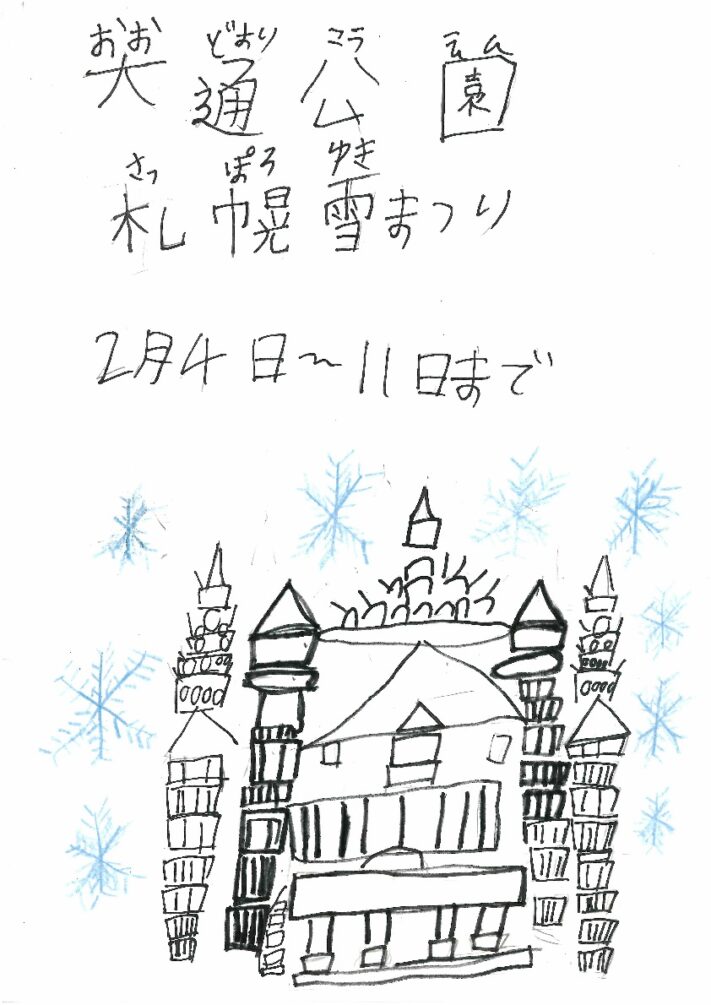 おお どおり こう えん
大通公園
さっ ぽろ ゆき
札幌雪まつり
2月4日～11日まで